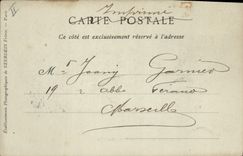 Imprimé
CARTE POSTALE
Ce côté est exclusivement réservé à l'adresse
Mr Joany Garnier
19 r abbé Feraud
Marseille
Etablissements Photographiques de NEURDEIN Frères. - Paris